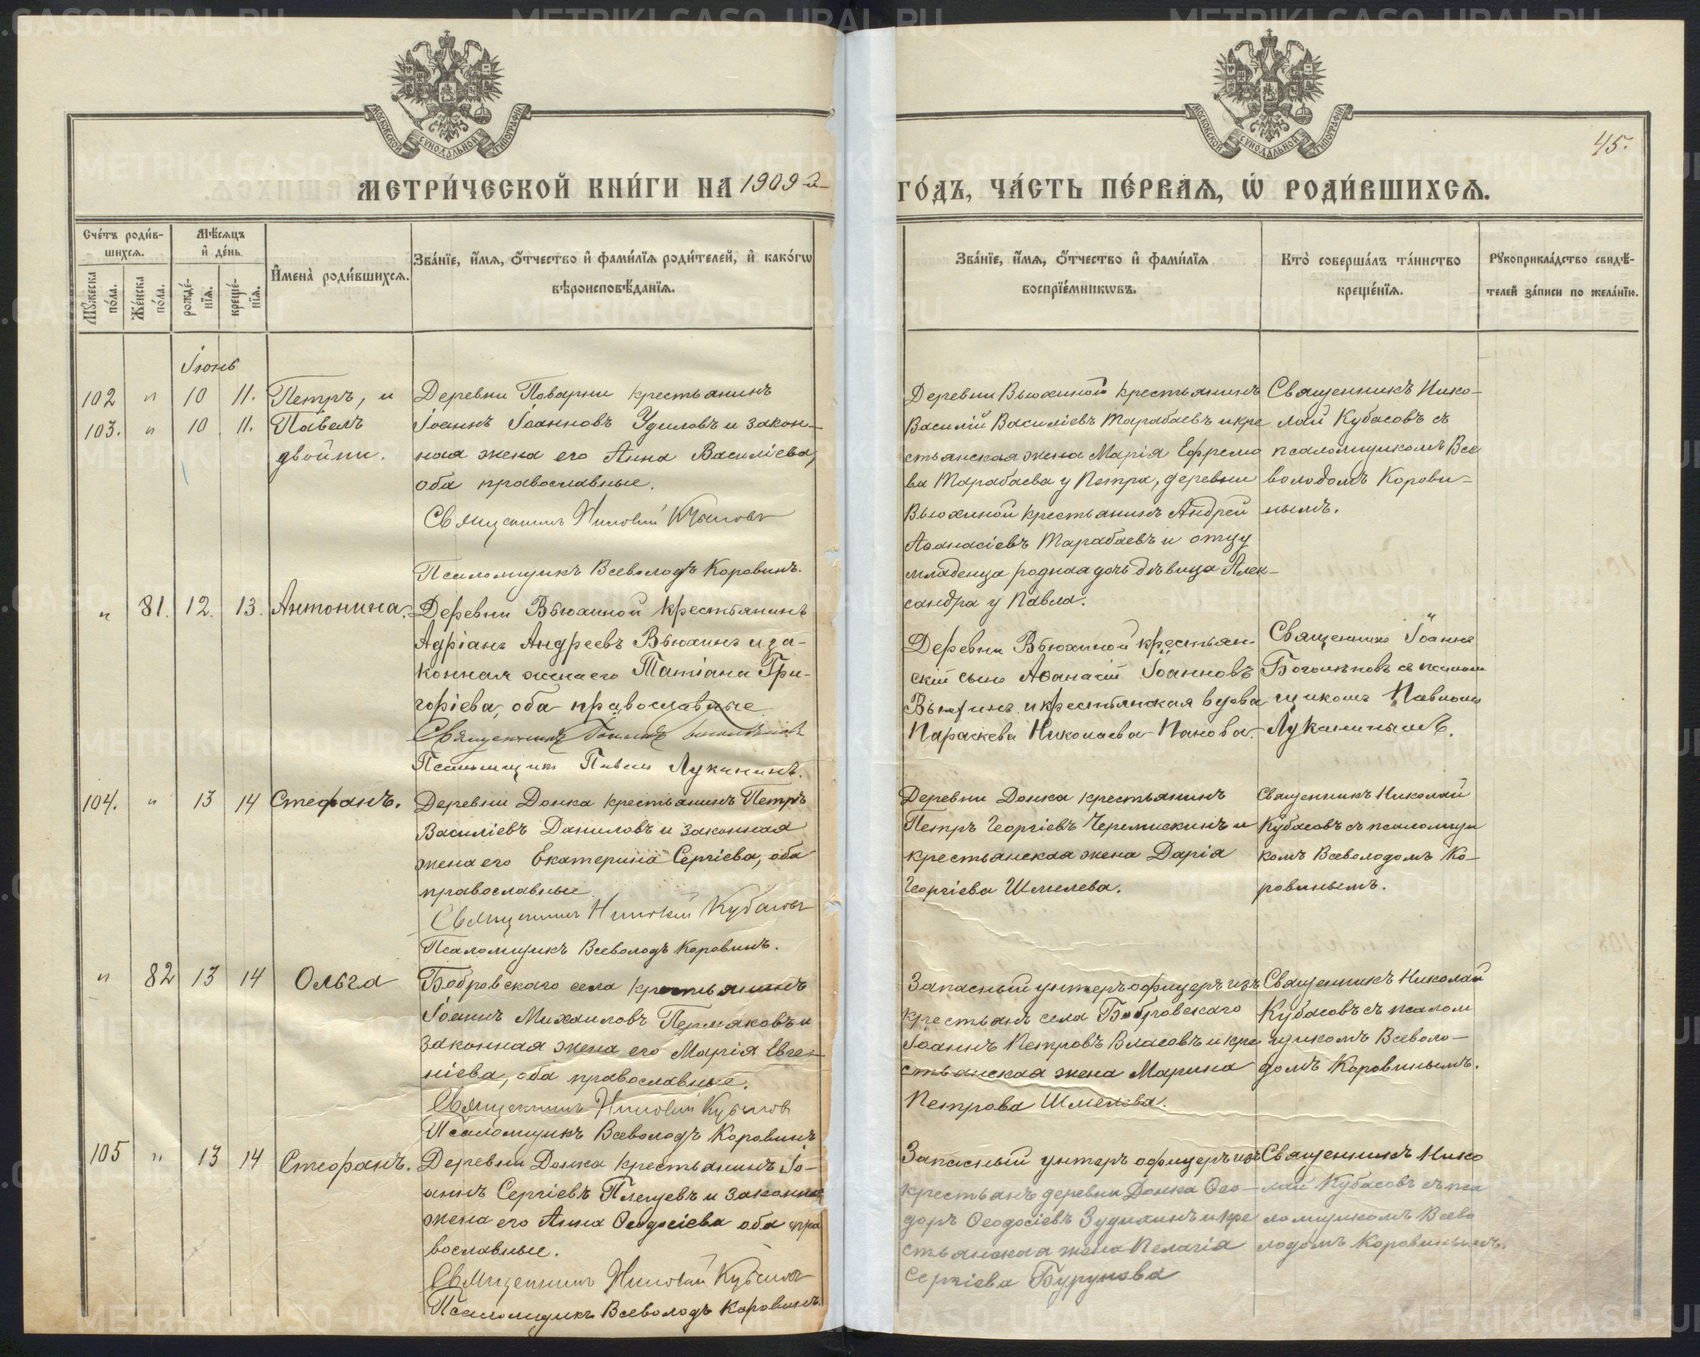 МЕТРИ́ЧЕСКОЙ КНИ́ГИ НА 1909 й
ГО́ДЪ, ЧА́СТЬ ПЕ́РВАЯ, Ѡ҆ РОДИ́ВШИХСѦ.
45.
МОСКОВСКОЙ СѴНОДАЛЬНОЙ ТИПОГРАФІИ
МОСКОВСКОЙ СѴНОДАЛЬНОЙ ТИПОГРАФІИ
Сче́тъ роди́в-
шихся.
Мѣ́сяцъ
и҆ де́нь
Мꙋ́жеска по́ла.
Же́нска по́ла.
рожде́-
нїя.
креще́-
нїя.
И҆мена̀ роди́вшихся.
Зва́нїе, и҆́мя, ѻ҆́тчество и҆ фами́лїя роди́телей, и҆ како́гѡ
вѣроисповѣ́данїя.
Зва́нїе, и҆́мя, ѻ҆́тчество и҆ фами́лїя
воспрїе́мникѡвъ.
Кто̀ соверша́лъ та́инство
креще́нїя.
Рꙋкоприкла́дство свидѣ́-
телей за́писи по жела́нїю.
Іюнь
102 " 10 11. Петръ, и
103. " 10 11. Павелъ
двойни.
Деревни Поварни крестьянинъ
Іоаннъ Іоанновъ Удиловъ и закон-
ная жена его Анна Василіева,
оба православные.
Священникъ Николай Кубасовъ
Псаломщикъ Всеволодъ Коровинъ.
Деревни Вьюхиной крестьянинъ
Василій Василіевъ Тарабаевъ и кре
стьянская жена Марія Ефремо
ва Тарабаева у Петра, деревни
Вьюхиной крестьянинъ Андрей
Аѳанасіевъ Тарабаевъ и отцу
младенца родная дочь дѣвица Алек-
сандра у Павла.
Священникъ Нико-
лай Кубасовъ съ
псаломщикомъ Все
володомъ Корови-
нымъ.
" 81. 12. 13. Антонина.
Деревни Вьюхиной крестьянинъ
Адріанъ Андреевъ Вьюхинъ и за-
конная жена его Татіана Гри-
горіева, оба православные
Священникъ Іоаннъ Боголѣповъ
Псаломщикъ Павелъ Лукининъ.
Деревни Вьюхиной крестьян-
скій сынъ Аѳанасій Іоанновъ
Вьюхинъ и крестьянская вдова
Параскева Николаева Панова.
Священникъ Іоаннъ
Боголѣповъ съ псалом
щикомъ Павломъ
Лукининымъ.
104. " 13 14 Стефанъ.
Деревни Донка крестьянинъ Петръ
Василіевъ Даниловъ и законная
жена его Екатерина Сергіева, оба
православные
Священникъ Николай Кубасовъ
Псаломщикъ Всеволодъ Коровинъ.
Деревни Донка крестьянинъ
Петръ Георгіевъ Черемискинъ и
крестьянская жена Дарія
Георгіева Шмелева.
Священникъ Николай
Кубасовъ съ псаломщи
комъ Всеволодомъ Ко-
ровинымъ.
" 82 13 14 Ольга
Бобровскаго села крестьянинъ
Іоаннъ Михаиловъ Пермяковъ и
законная жена его Марія Евге-
ніева, оба православные.
Священникъ Николай Кубасовъ
Псаломщикъ Всеволодъ Коровинъ
Запасный унтеръ офицеръ изъ
крестьянъ села Бобровскаго
Іоаннъ Петровъ Власовъ и кре
стьянская жена Марина
Петрова Шмелева.
Священникъ Николай
Кубасовъ съ псалом
щикомъ Всеволо-
домъ Коровинымъ.
105 " 13 14 Стефанъ.
Деревни Донка крестьянинъ Іо-
аннъ Сергіевъ Плещевъ и законная
жена его Анна Ѳеодосіева оба пра
вославные.
Священникъ Николай Кубасовъ
Псаломщикъ Всеволодъ Коровинъ.
Запасный унтеръ офицеръ изъ
крестьянъ деревни Донка Ѳео-
доръ Ѳеодосіевъ Зудихинъ и кре
стьянская жена Пелагія
Сергіева Бурунова
Священникъ Нико
лай Кубасовъ съ пса
ломщикомъ Всево
лодомъ Коровинымъ.
METRIKI.GASO-URAL.RU